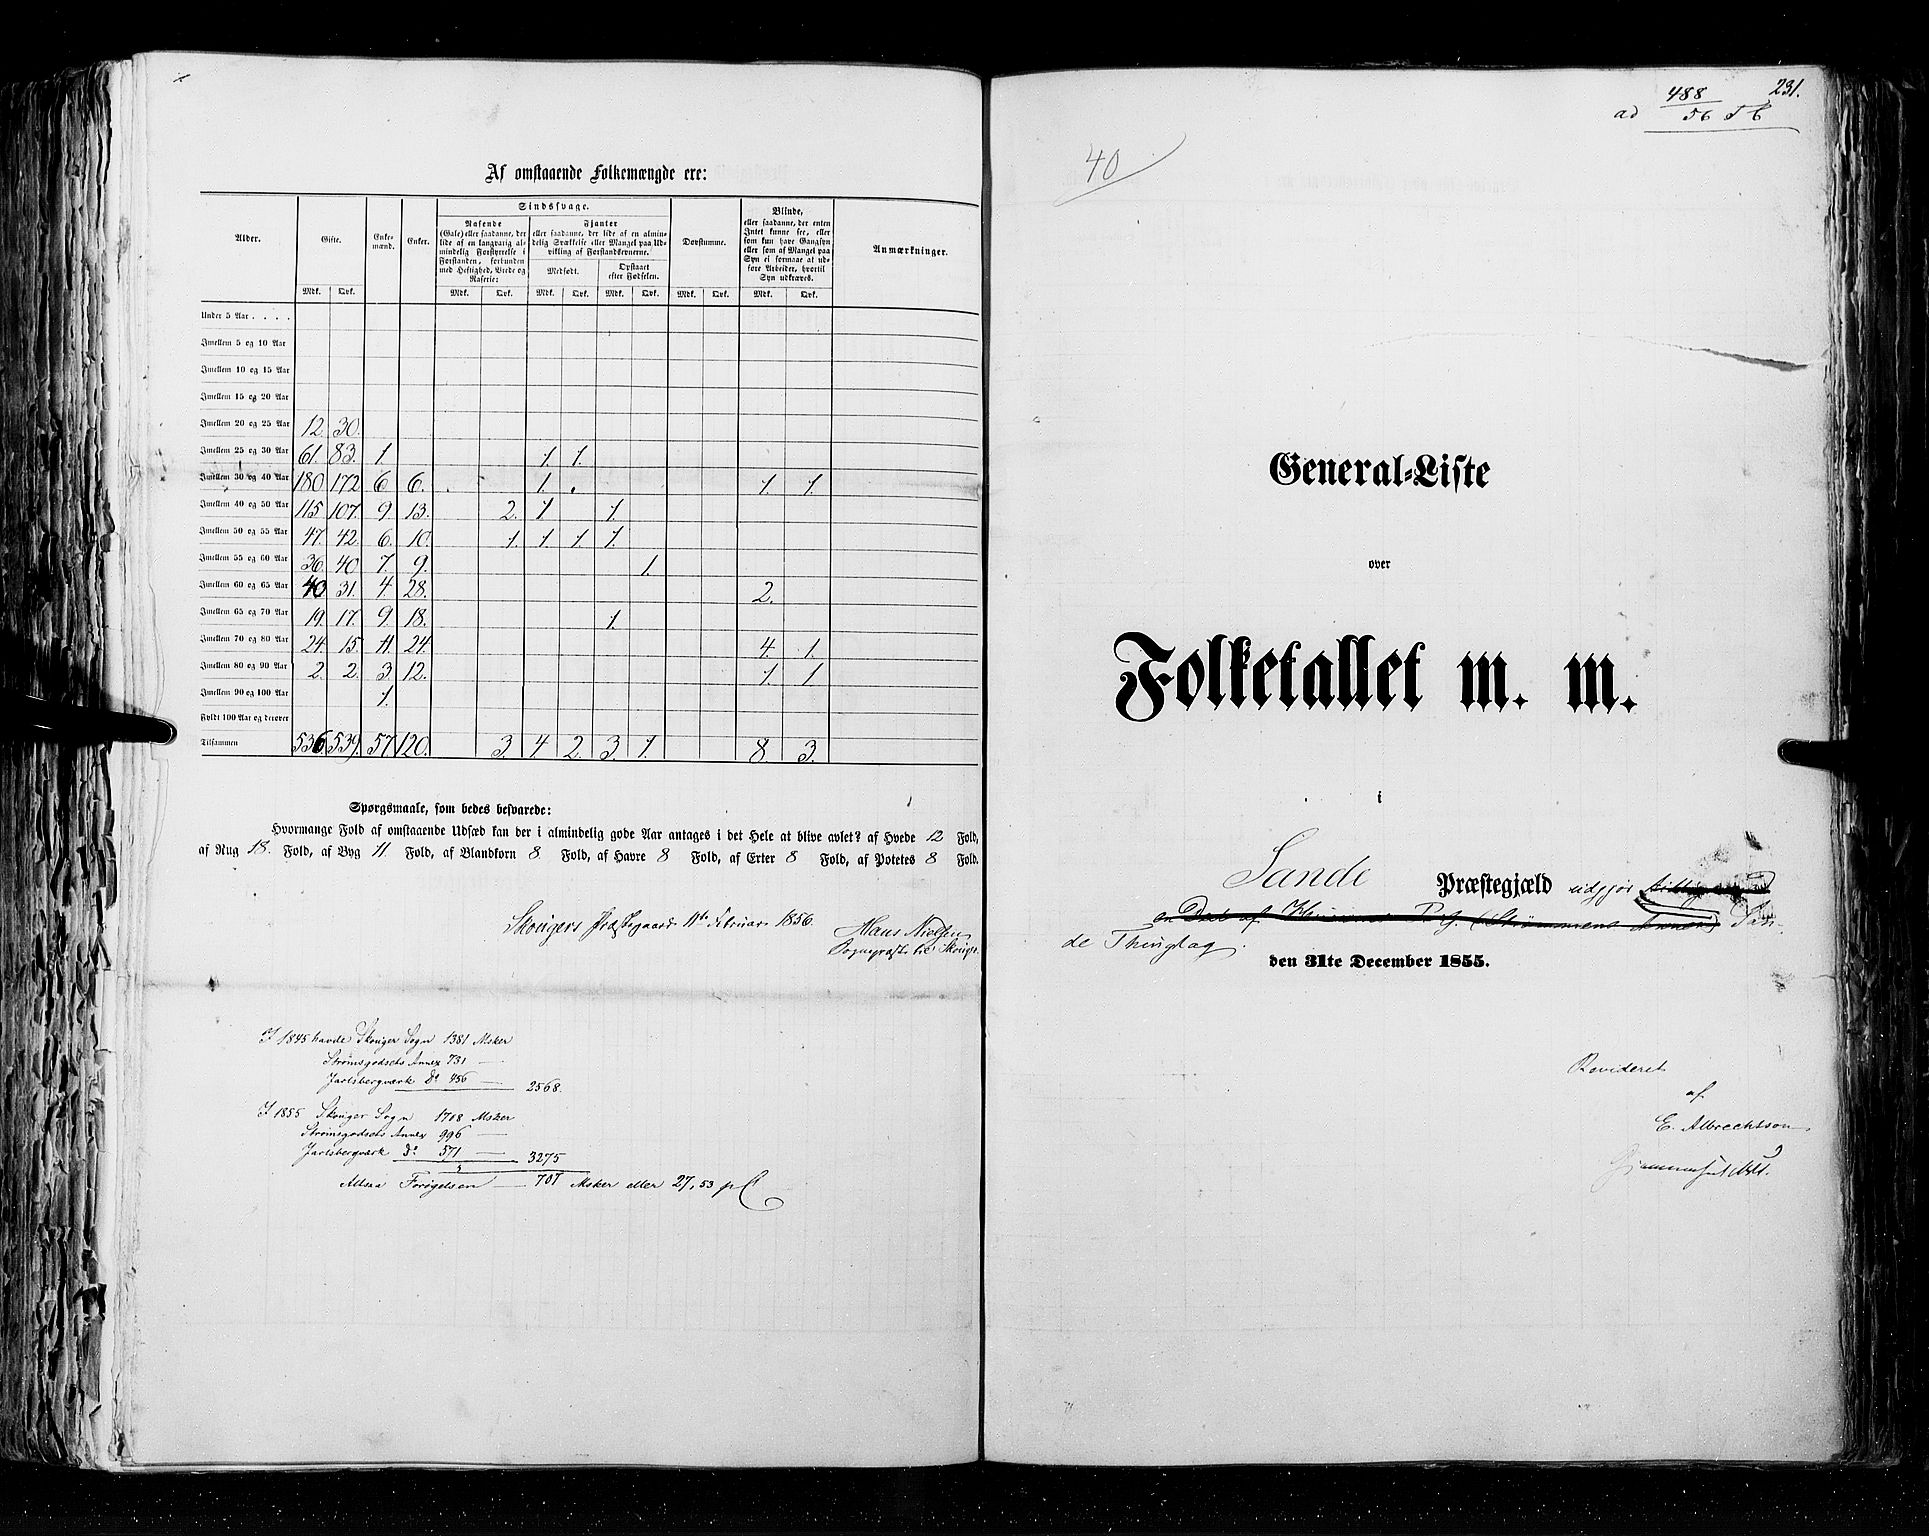 Af omstaaende Folkemængde ere:
Alder. Gifte. Enke-mænd. Enker. Sindssvage. Døvstumme. Blinde, Anmærkninger.
Rasende (Gale) eller saadanne, der lide af en langvarig almindelig Forstyrrelse i Forstanden, forbunden med Heftighed, Vrede og Raserie:
Fjanter eller saadanne, der lide af en almindelig Svækkelse eller Mangel paa Udvikling af Forstandsevnerne.
Medfødt. Opstaaet efter Fødselen.
eller saadanne, der enten Intet kunne see, eller som kun have Gangsyn eller som af Mangel paa Syn ei formaae at udføre Arbeider, hvortil Syn udkræves.
Mdk. Qvk. Mdk. Qvk. Mdk. Qvk. Mdk. Qvk. Mdk. Qvk. Mdk. Qvk.
Under 5 Aar . . . .
Imellem 5 og 10 Aar
Imellem 10 og 15 Aar
Imellem 15 og 20 Aar
Imellem 20 og 25 Aar 12 30.
Imellem 25 og 30 Aar 61. 83. 1 1. 1.
Imellem 30 og 40 Aar 180 172 6 6. 1. 1. 1.
Imellem 40 og 50 Aar 115 107. 9 13. 2. 1 1.
Imellem 50 og 55 Aar 47. 42. 6. 10. 1. 1. 1. 1.
Imellem 55 og 60 Aar 36. 40 7. 9. 1.
Imellem 60 og 65 Aar 40 31. 4. 28. 2.
Imellem 65 og 70 Aar 19. 17. 9. 18. 1.
Imellem 70 og 80 Aar 24. 15. 11 24. 4. 1.
Imellem 80 og 90 Aar 2. 2. 3. 12. 1. 1
Imellem 90 og 100 Aar 1.
Fyldt 100 Aar og derover
Tilsammen 536 539. 57 120. 3. 4. 2. 3. 1. 8. 3.
Spørgsmaale, som bedes besvarede:
Hvormange Fold af omstaaende Udsæd kan der i almindelig gode Aar antages i det Hele at blive avlet? af Hvede 12 Fold,
af Rug 18. Fold, af Byg 11. Fold, af Blandkorn 8 Fold, af Havre 8 Fold, af Erter 8 Fold, af Potetes 8 Fold.
Skougers Præstegaard 11te Februar 1856.
Hans Nielsen
Sognepræst til Skouger
I 1845 havde Skouger Sogn 1381 Msker
Strømsgodsets Annex 731 —
Jarlsbergværk do 456 — 2568.
I 1855 Skouger Sogn 1708 Msker
Strømsgodsets Annex 996 —
Jarlsbergværk do 571 — 3275
Altsaa Forøgelsen — 707 Msker eller 27,53 pC
231.
ad 488/56
40
General-Liste
over
Folketallet m. m.
i
Sande Præstegjæld udgjør
San-
de Thinglag.
den 31te December 1855.
Revideret
af
E. Albrechtson